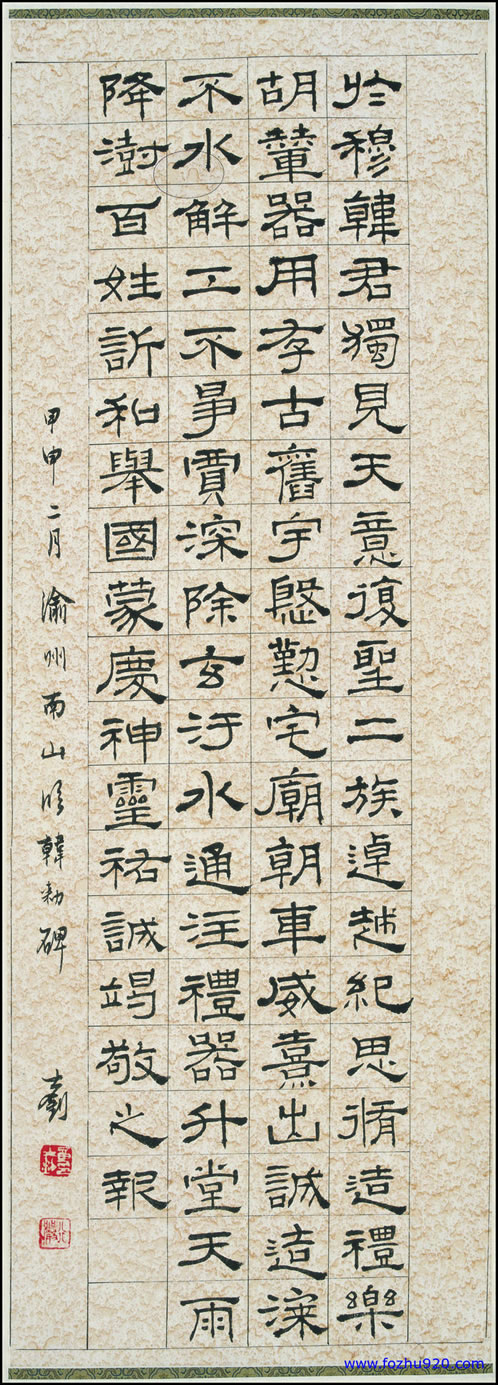 於穆韓君獨見天意復聖二族逴越紀思脩造禮樂
胡輦器用存古舊宇慇懃宅廟朝車威熹出誠造漆
不水解工不爭賈深除玄汙水通注禮器升堂天雨
降澍百姓訢和舉國蒙慶神靈祐誠竭敬之報
甲申二月渝州南山臨韓勑碑
www.fozhu920.com